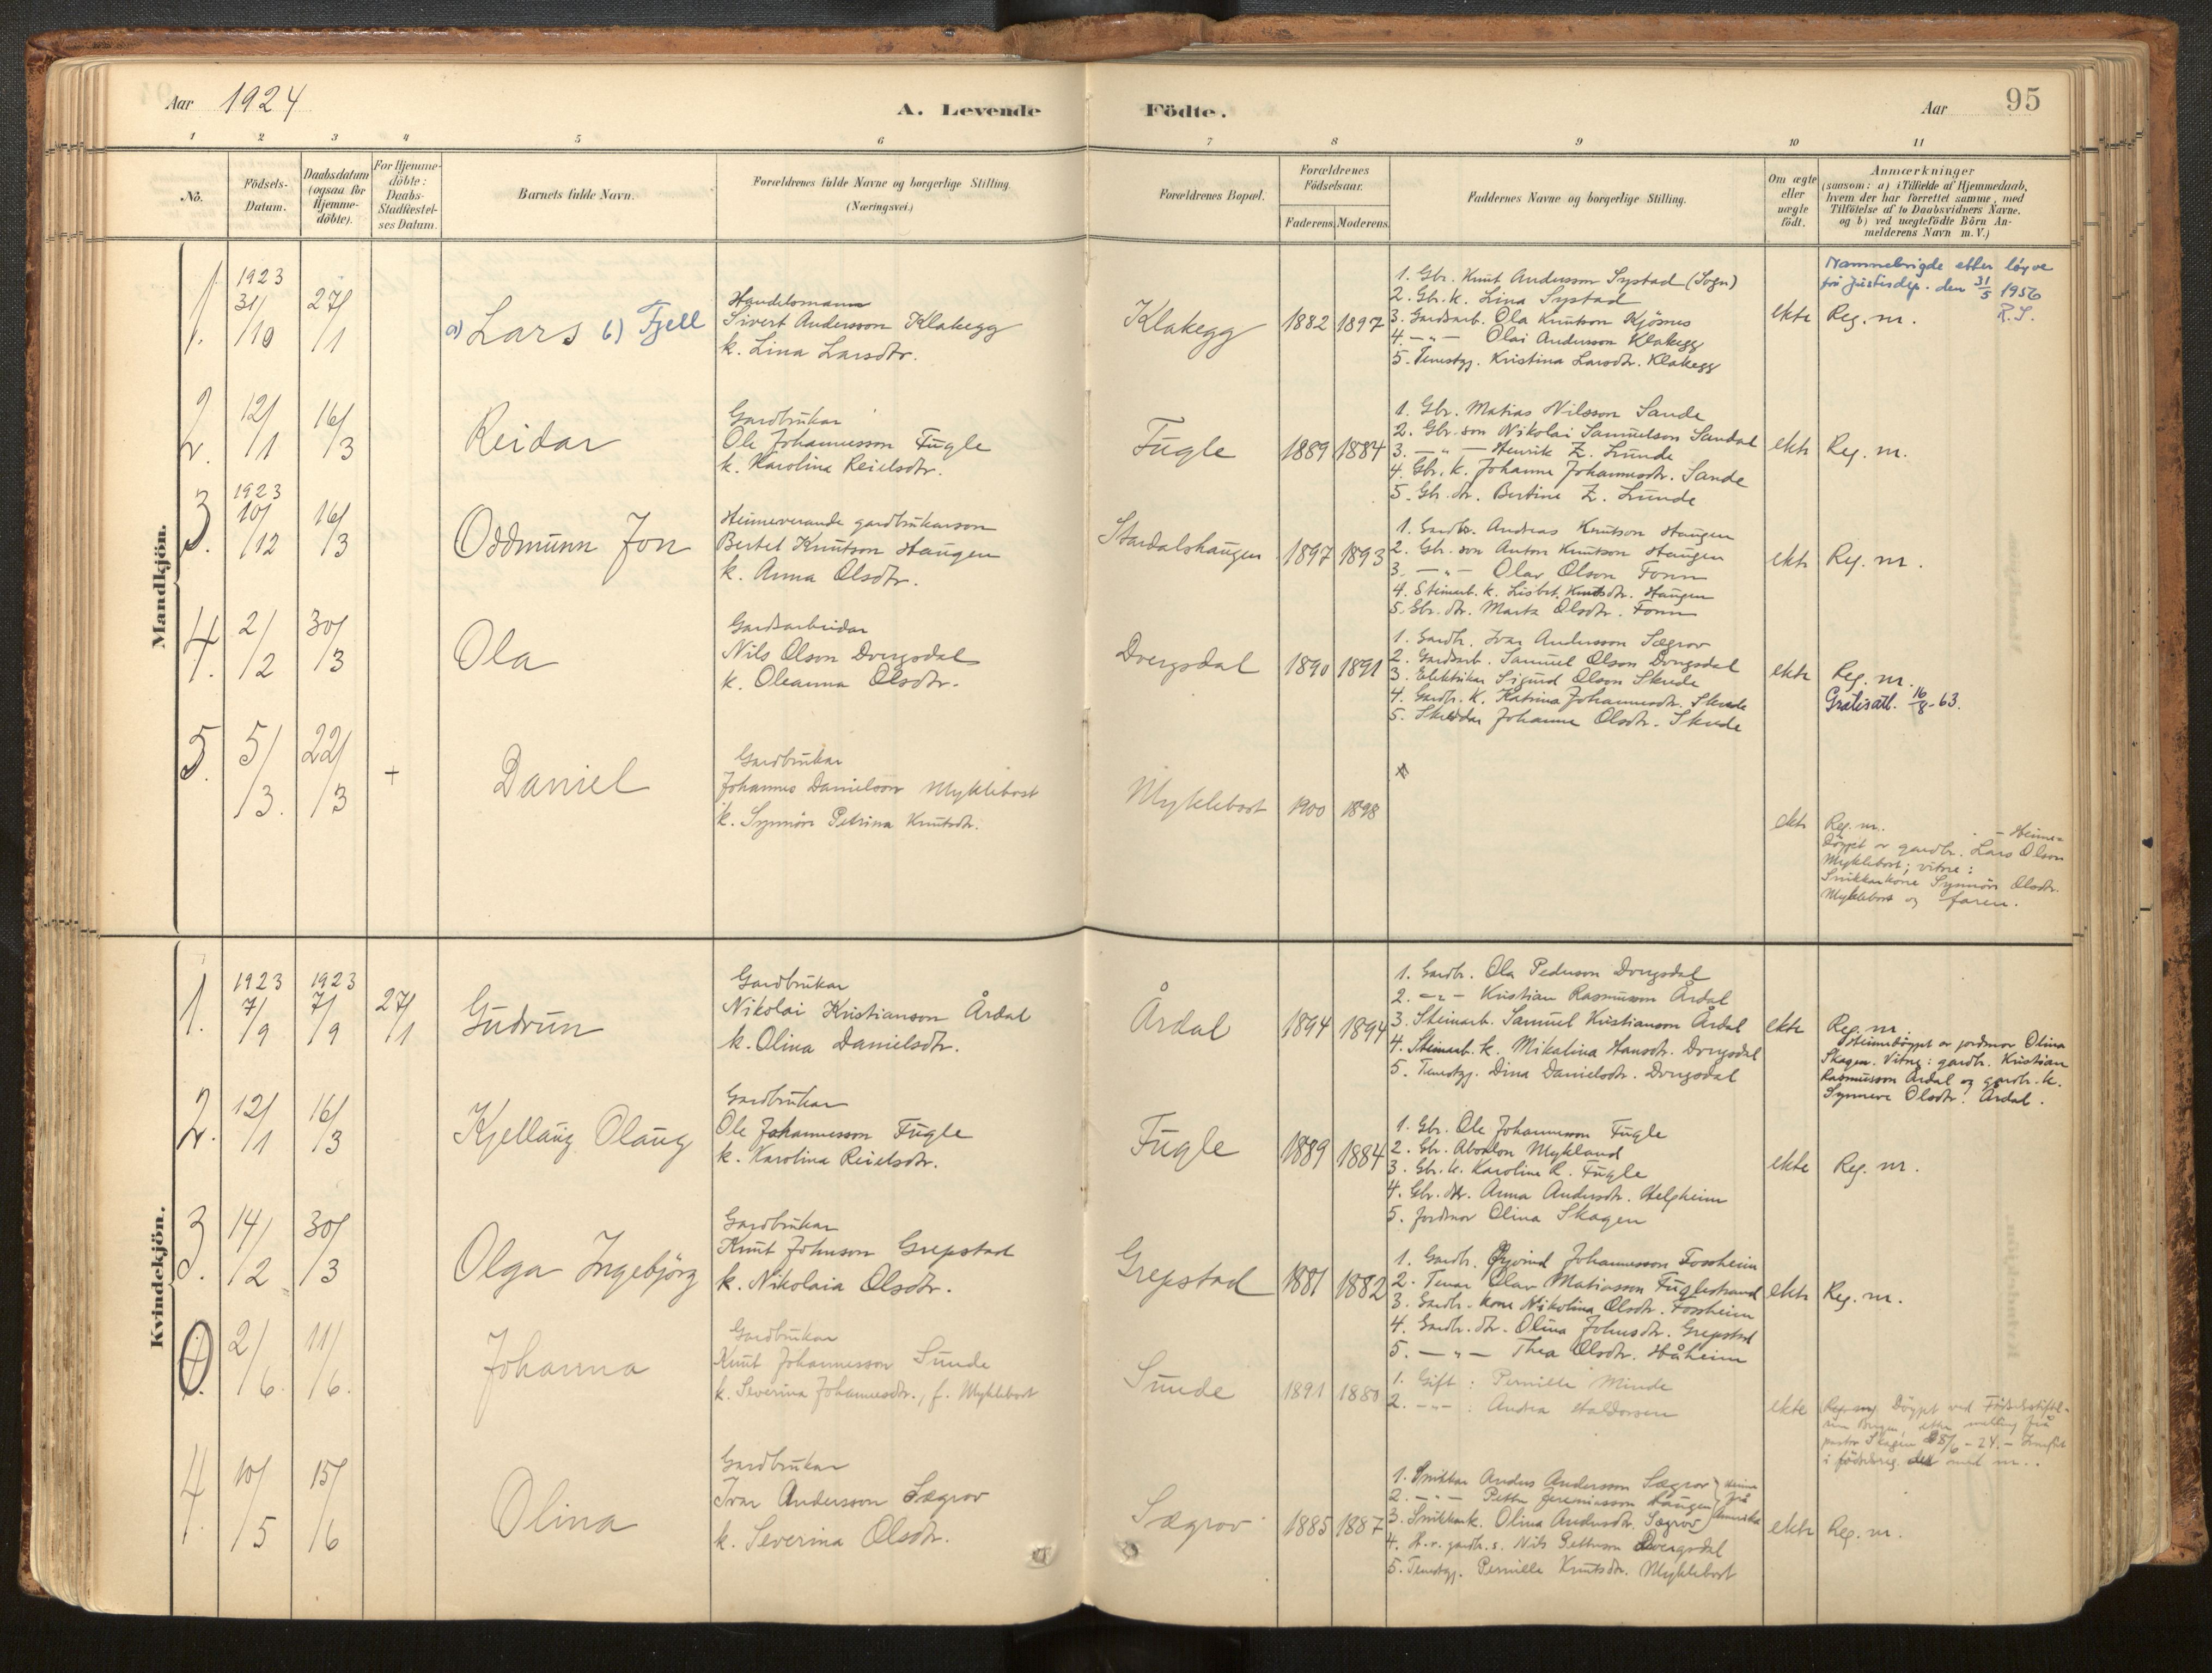 Aar 1924
A. Levende Födte.
Aar
95
1 2 3 4 5 6 7 8 9 10 11
No.
Födsels-Datum.
Daabsdatum (ogsaa for Hjemme-döbte).
For Hjemme-döbte: Daabs-Stadfæstel-ses Datum.
Barnets fulde Navn.
Forældrenes fulde Navne og borgerlige Stilling. (Næringsvei.)
Forældrenes Bopæl.
Forældrenes Födselsaar.
Faderens. Moderens.
Faddernes Navne og borgerlige Stilling.
Om ægte eller uægte födt.
Anmærkninger (saasom: a) i Tilfælde af Hjemmedaab, hvem der har forrettet samme, med Tilföielse af to Daabsvidners Navne, og b) ved uægtefödte Börn An-melderens Navn m. V.)
Mandkjön.
1. 1923 31/10 27/1
a) Lars b) Fjell
Handelsmann
Sivert Andersson Klakegg
k. Lina Larsdtr.
Klakegg
1882 1897
1. Gbr. Knut Andersson Systad (Sogn)
2. Gbr. k. Lina Systad
3. Gardsarb. Ola Knutson Kjösnes
4. — " — Olai Andersson Klakegg
5. Tenestgj. Kristina Larsdtr. Klakegg
ekte
Namnebrigde etter løyve
frå Justisdep. den 31/5 1956
Reg. m. R.S.
2. 12/1 16/3
Reidar
Gardbrukar
Ole Johannesson Fugle
k. Karolina Reielsdtr.
Fugle
1889 1884
1. Gbr. Matias Nilsson Sande
2. Gbr. son Nikolai Samuelson Sandal
3. — " — Henrik Z. Lunde
4. Gbr. k. Johanne Johannesdtr. Sande
5. Gbr. dtr. Bertine Z. Lunde
ekte
Reg. m.
3. 1923 10/12 16/3
Oddmunn Jon
Heimeverande gardbrukarson
Bertel Knutson Haugen
k. Anna Olsdtr.
Stardalshaugen
1897 1893
1. Gardbr. Andreas Knutson Haugen
2. Gbr. son Anton Knutson Haugen
3. — " — Olav Olson Fonn
4. Steinarb. k. Lisbet Knutsdtr. Haugen
5. Gbr. dtr. Marta Olsdtr. Fonn
ekte
Reg. m.
4. 2/2 30/3
Ola
Gardsarbeidar
Nils Olson Dvergsdal
k. Oleanna Olsdtr.
Dvergsdal
1890 1891
1. Gardbr. Ivar Andersson Sægrov
2. Gardsarb. Samuel Olson Dvergsdal
3. Elektrikar Sigurd Olson Skrede
4. Gardbr. k. Katrina Johannesdtr. Skrede
5. Skreddar Johanne Olsdtr. Skrede
ekte
Reg. m.
Gratisatt. 16/8-63.
5. 5/3. 22/3 +
Daniel
Gardbrukar
Johannes Danielson Myklebost
k. Synnöve Petrina Knutsdtr.
Myklebost
1900 1898
ekte
Reg. m. — Heime-
döypt av gardbr. Lars Olson
Myklebost; vitne:
Snikkarkone Synnöve Olsdtr.
Myklebost og faren.
Kvindekjön.
1. 1923 7/9 1923 7/9 27/1
Gudrun
Gardbrukar
Nikolai Kristianson Årdal
k. Olina Danielsdtr.
Årdal
1894 1894
1. Gardbr. Ola Pederson Dvergsdal
2. — " — Kristian Rasmusson Årdal
3. Steinarb. Samuel Kristianson Årdal
4. Steinarb. k. Mikalina Hansdtr. Dvergsdal
5. Tenestgj. Dina Danielsdtr. Dvergsdal
ekte
Reg. m.
Heimedöypt av jordmor Olina
Skagen. Vitne: gardbr. Kristian
Rasmusson Årdal og gardbr. k.
Synneve Olsdtr. Årdal.
2. 12/1 16/3
Kjellaug Olaug
Gardbrukar
Ole Johannesson Fugle
k. Karolina Reielsdtr.
Fugle
1889 1884
1. Gbr. Ole Johannesson Fugle
2. Gbr. Absalon Mykland
3. Gbr. k. Karoline R. Fugle
4. Gbr. dtr. Anna Andersdtr. Helgheim
5. Jordmor Olina Skagen
ekte
Reg. m.
3. 14/2 30/3
Olga Ingebjörg
Gardbrukar
Knut Johnson Grepstad
k. Nikolaia Olsdtr.
Grepstad
1881 1882
1. Gardbr. Øyvind Johannesson Fossheim
2. Tenar Olav Matiasson Fuglestrand
3. Gardbr. kone Nikolina Olsdtr. Fossheim
4. Gardbr. dtr. Olina Johnsdtr. Grepstad
5. — " — Thea Olsdtr. Håheim
ekte
Reg. m.
2/6. 11/6.
Johanna
Gardbrukar
Knut Johannesson Sunde
k. Severina Johannesdtr., f. Myklebost
Sunde
1891 1880
1. Gift: Pernille Minde
2. — " — : Andrea Haldorsen
ekte
Döypt ved Födselsstiftel-
sen Bergen, etter melding frå
pastor Skagen
4 10/5 15/6
Olina
Gardbrukar
Ivar Andersson Sægrov
k. Severina Olsdtr.
Sægrov
1885 1887
1. Snikkar Anders Andersson Sægrov } heime
2. — " — Petter Jeremiasson Haugen } frå
3. Snikkark. Olina Andersdtr. Sægrov } Amerika
4. H.v. gardbr. s. Nils Pettersson Dvergsdal
5. Tenestgj. Pernille Knutsdtr. Myklebost
ekte
Reg. m.